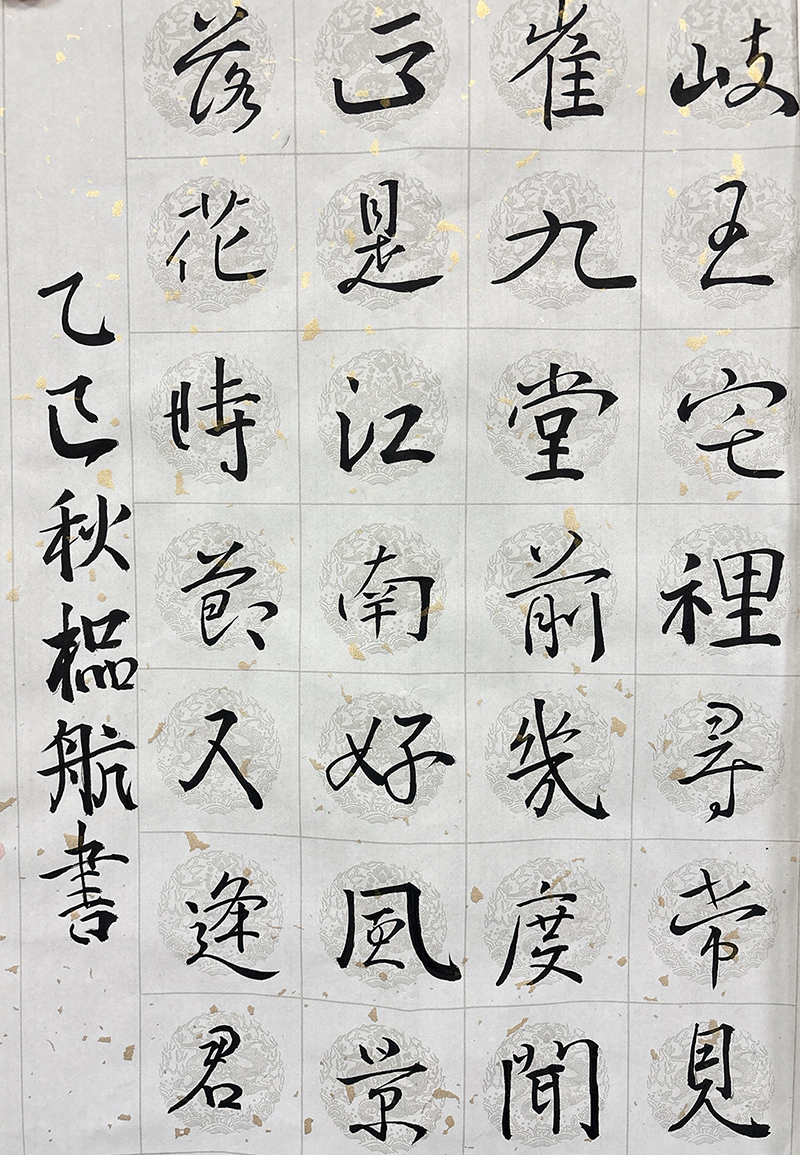 岐王宅裡尋常見
崔九堂前幾度聞
正是江南好風景
落花時節又逢君
乙巳秋榀航書